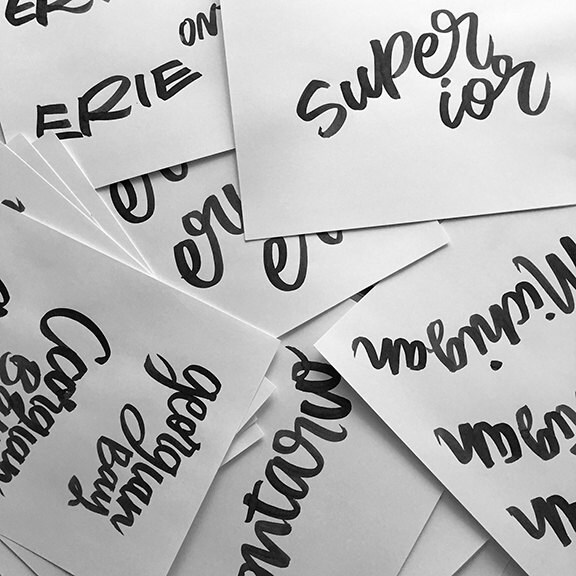 ERIE
ON
ERIE
Super
ior
er
er
er
Michigan
igan
an
georgian
Bay
Georgian
Ba
ntario